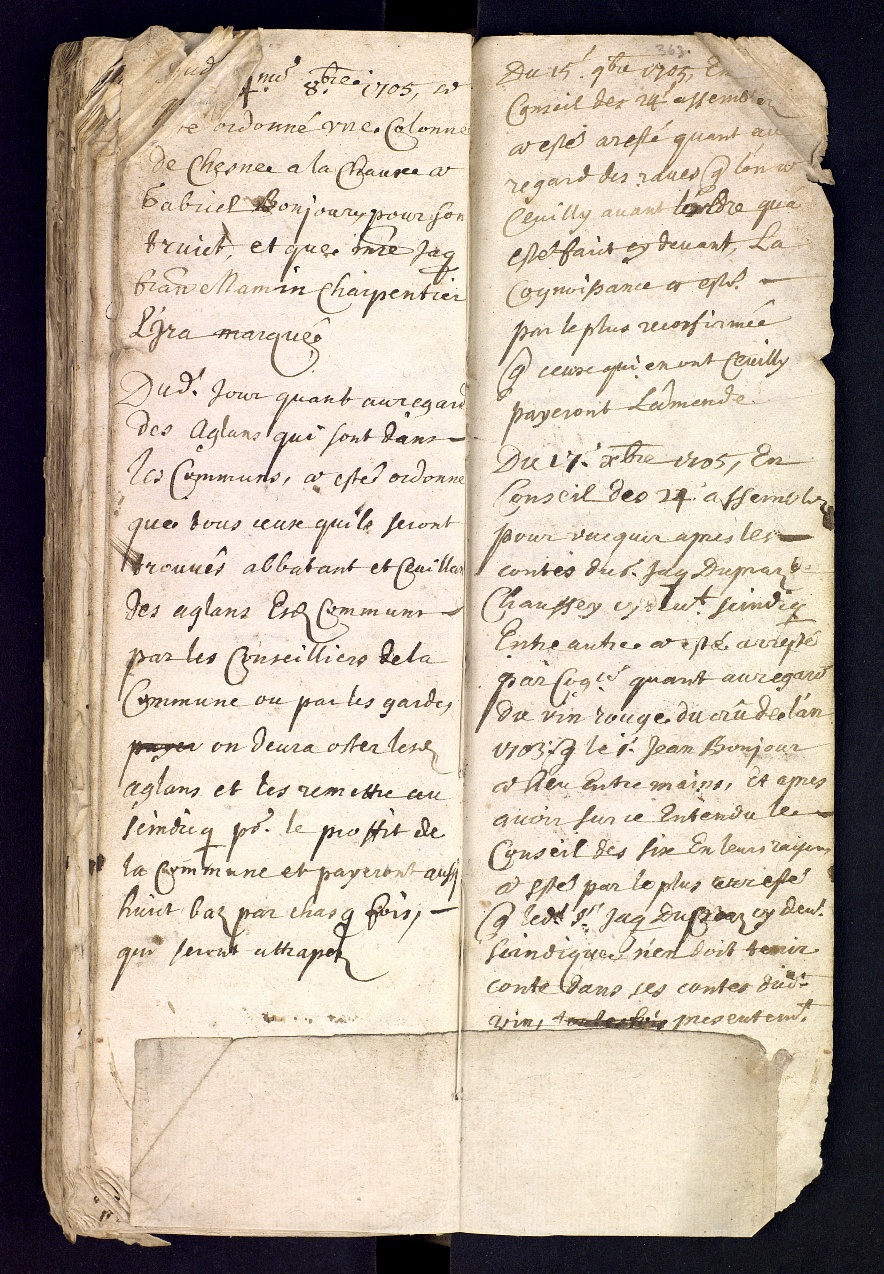 4me 8bre 1705, a
ordonné vne Colonne
de Chesne a la Chauxe a
Gabriel Bonjour, pour son
truict, et que mre Jaq
Mamin Charpentier
L'ira marqué
Dud.t Jour quant au regard
des Aglans qui sont dans
les Communs, a esté ordonne
que tous ceux qu'ils seront
trouués abbatant et Ceuillan
des aglans Esd Communs
par les Conseilliers de la
Commune ou par les gardes
payer on deura oster lesd
aglans et les remettre au
seindicq pr. le proffit de
la Commune et payeront aussy
huict baz par chasq fois,
qui seront attrapez
363.
Du 15e. 9bre 1705, En
Conseil des 24 assemblez
a esté aresté quant au
regard des raues q lon a
Ceuilly auant l'ordre qua
esté fait cy deuant, La
Cognoissance a esté
par le plus reconfirmée
q ceux qui en ont Ceuilly
payeront Lamende
Du 17e. xbre 1705, En
Conseil des 24 assemblez
pour vacquer apres les
contes du Sr. Jaq Dupraz d.
Chaussey cy deut seindiq
Entre autre a esté arresté
par Cogce quant au regard
du vin rouge du crû de l'an
1703, q le Sr. Jean Bonjour
a heu Entre mains, et apres
auoir sur ce Entendu le
Conseil des six En leurs raysons
a esté par le plus arresté
q led.t Sr. Jaq Dupraz cy deut.
seindique n'en doit tenir
conte dans ses contes dud.t
vin, toutesfois presentemt.